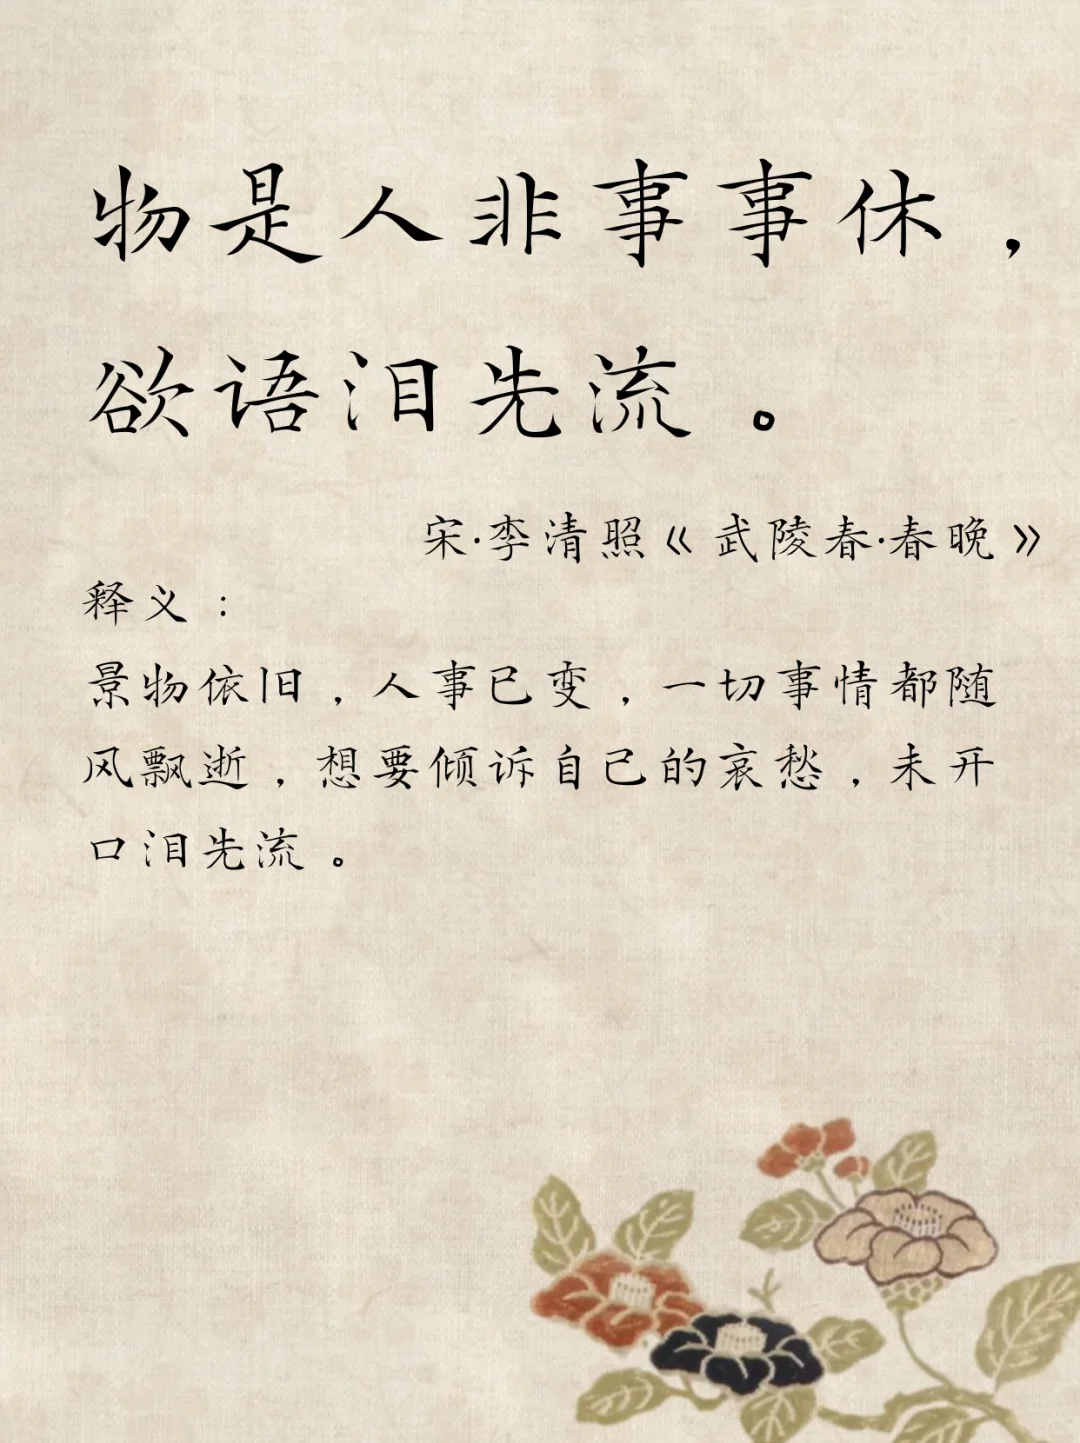 物是人非事事休，
欲语泪先流。
宋·李清照《武陵春·春晚》
释义：
景物依旧，人事已变，一切事情都随
风飘逝，想要倾诉自己的哀愁，未开
口泪先流。